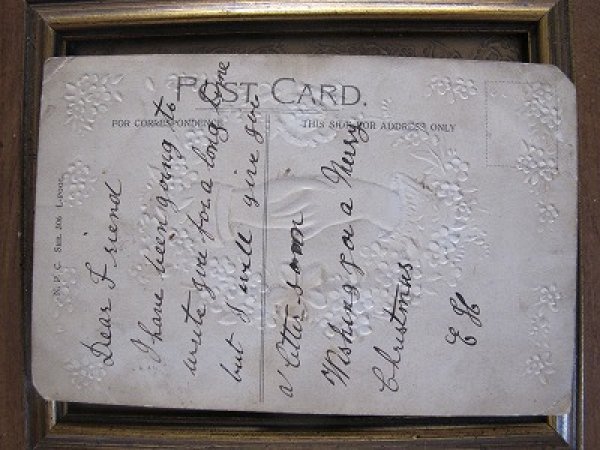 POST CARD.
FOR CORRESPONDENCE
THIS SIDE FOR ADDRESS ONLY
Dear Friend
I have been going to
write you for a long time
but I will give you
a letter soon
Wishing you a Merry
Christmas
E H